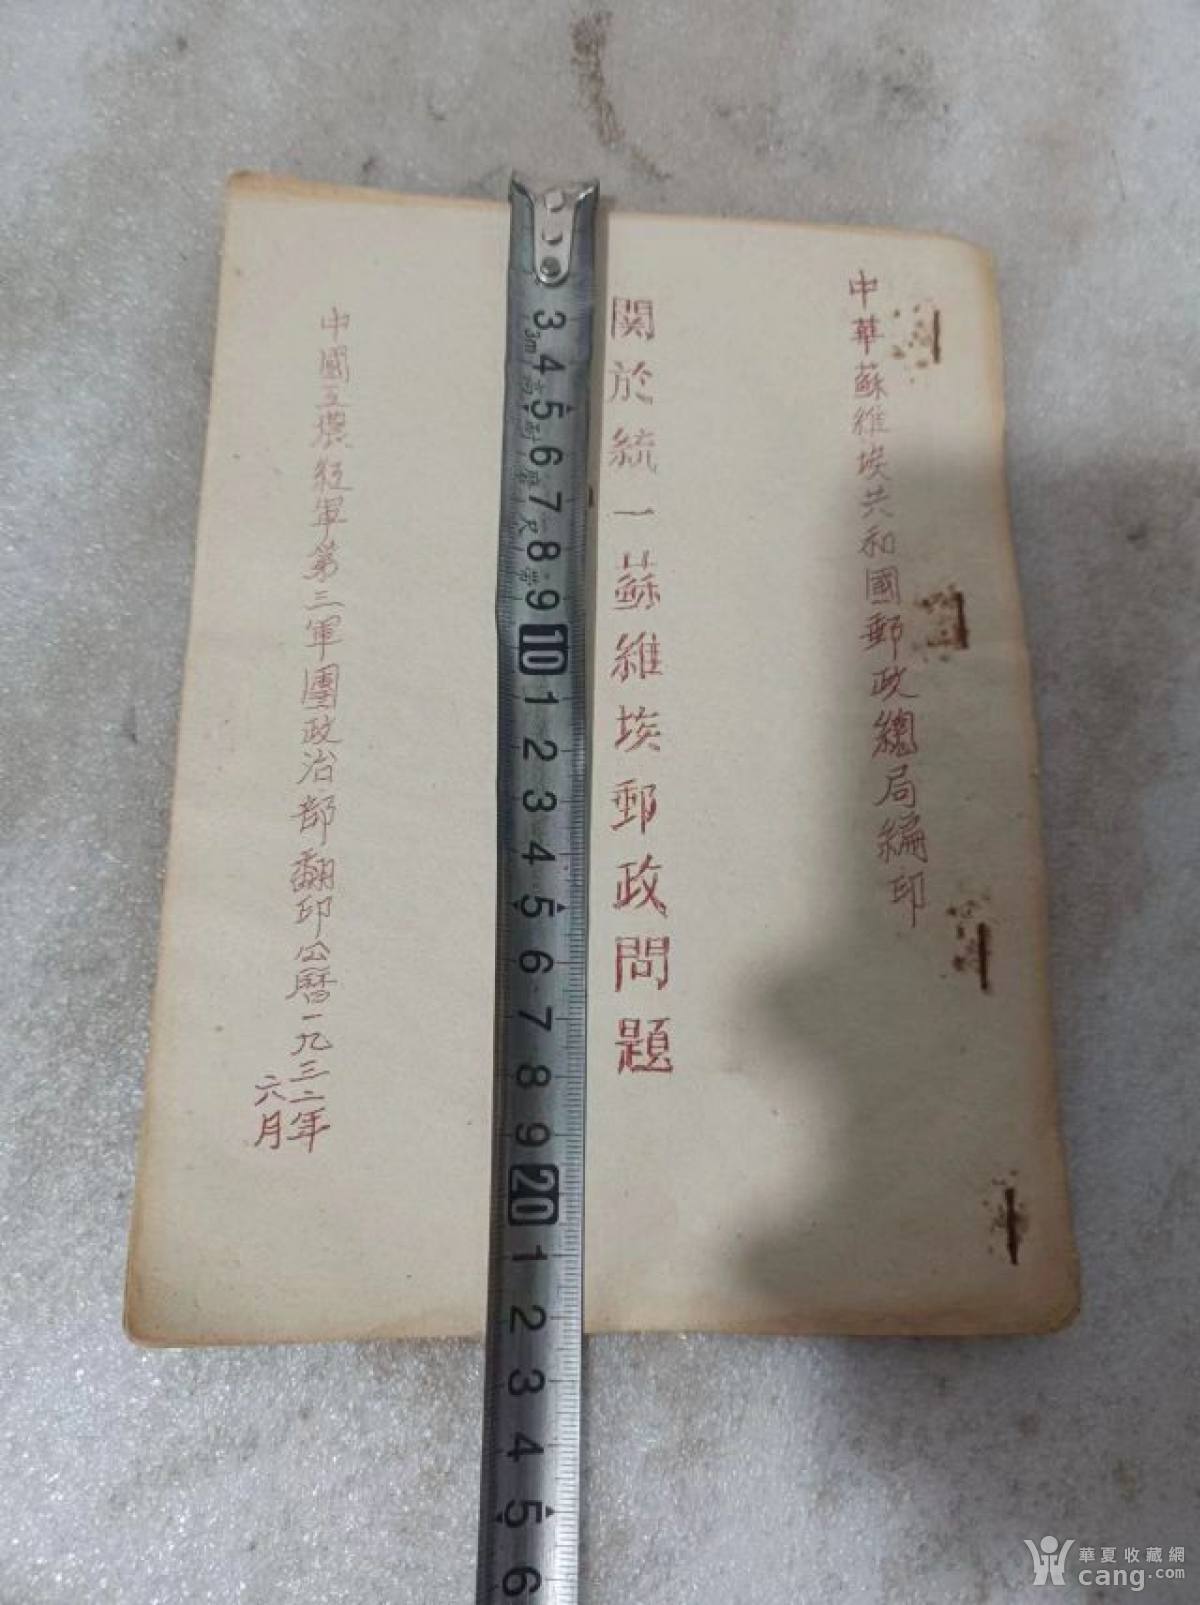 中華蘇維埃共和國郵政總局編印
關於統一蘇維埃郵政問題
中國工農紅軍第三軍團政治部翻印公曆一九三二年
六月
3 4 5 6 7 8 9 10 1 2 3 4 5 6 7 8 9 20 1 2 3 4 5 6
3m
華夏收藏網
cang.com